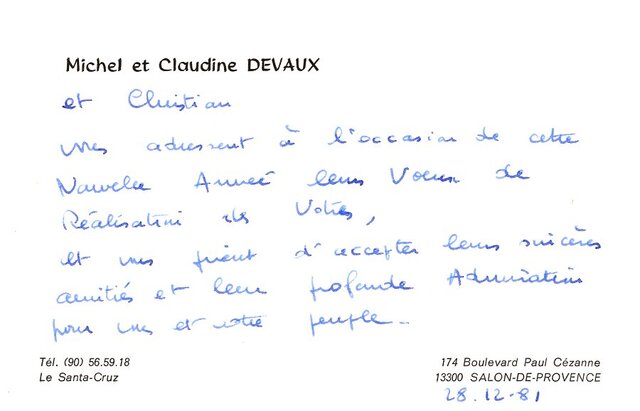 Michel et Claudine DEVAUX
et Christian
vous adressent à l'occasion de cette
Nouvelle Année leurs Voeux de
Réalisation des Votres,
et vous prient d'accepter leurs sincères
amitiés et leur profonde Admiration
pour vous et votre peuple -
Tél. (90) 56.59.18
Le Santa-Cruz
174 Boulevard Paul Cézanne
13300 SALON-DE-PROVENCE
28.12-81